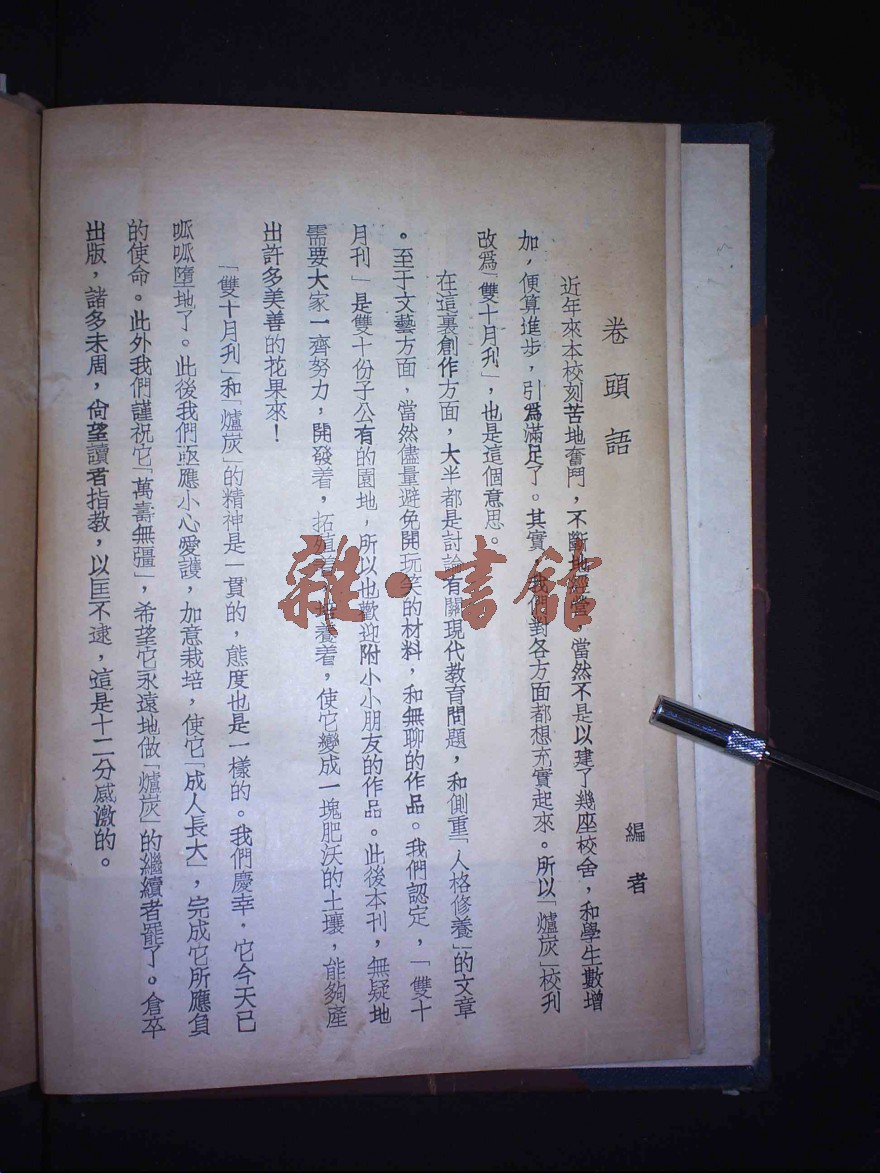 卷頭語
編者
近年來本校刻苦地奮鬥，不斷地經營，當然不是以建了幾座校舍，和學生數增
加，便算進步，引爲滿足了。其實，我們對各方面都想充實起來。所以「爐炭」校刋
改爲「雙十月刋」，也是這個意思。
在這裏創作方面，大半都是討論有關現代教育問題，和側重「人格修養」的文章
。至于文藝方面，當然儘量避免開玩笑的材料，和無聊的作品。我們認定，「雙十
月刋」是雙十份子公有的園地，所以也歡迎附小小朋友的作品。此後本刋，無疑地
需要大家一齊努力，開發着，拓殖着，培養着，使它變成一塊肥沃的土壤，能夠產
出許多美善的花果來！
「雙十月刋」和「爐炭」的精神是一貫的，態度也是一樣的。我們慶幸，它今天已
呱呱墮地了。此後我們亟應小心愛護，加意栽培，使它「成人長大」，完成它所應負
的使命。此外我們謹祝它「萬壽無彊」，希望它永遠地做「爐炭」的繼續者罷了。倉卒
出版，諸多未周，尙望讀者指教，以匡不逮，這是十二分感激的。
雜·書館